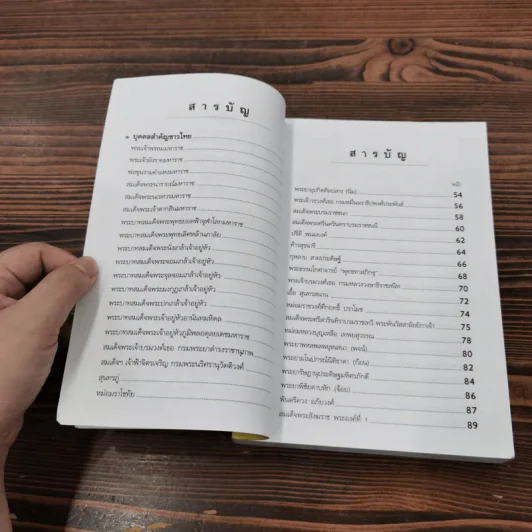 สารบัญ
บุคคลสำคัญชาวไทย
พระเจ้าพรหมมหาราช
พระเจ้ามังรายมหาราช
พ่อขุนรามคำแหงมหาราช
สมเด็จพระนารายณ์มหาราช
สมเด็จพระนเรศวรมหาราช
สมเด็จพระเจ้าตากสินมหาราช
พระบาทสมเด็จพระพุทธยอดฟ้าจุฬาโลกมหาราช
พระบาทสมเด็จพระพุทธเลิศหล้านภาลัย
พระบาทสมเด็จพระนั่งเกล้าเจ้าอยู่หัว
พระบาทสมเด็จพระจอมเกล้าเจ้าอยู่หัว
พระบาทสมเด็จพระจุลจอมเกล้าเจ้าอยู่หัว
พระบาทสมเด็จพระมงกุฎเกล้าเจ้าอยู่หัว
พระบาทสมเด็จพระปกเกล้าเจ้าอยู่หัว
พระบาทสมเด็จพระเจ้าอยู่หัวอานันทมหิดล
พระบาทสมเด็จพระเจ้าอยู่หัวภูมิพลอดุลยเดชมหาราช
สมเด็จพระเจ้าบรมวงศ์เธอ กรมพระยาดำรงราชานุภาพ
สมเด็จฯ เจ้าฟ้าจิตรเจริญ กรมพระนริศรานุวัดติวงศ์
สุนทรภู่
หม่อมราโชทัย
สารบัญ
หน้า
พระยาอนุกิจศิลปสาร 54
พระเจ้าวรวงศ์เธอ กรมหมื่นนราธิปพงศ์ประพันธ์ 56
สมเด็จพระบรมราชชนก 58
สมเด็จพระศรีนครินทราบรมราชชนนี 60
ปรีดี พนมยงค์ 62
ท้าวสุรนารี 64
กุหลาบ สายประดิษฐ์ 66
พระธรรมโกศาจารย์ "พุทธทาสภิกขุ" 68
พระเจ้าบรมวงศ์เธอ กรมหลวงวงษาธิราชสนิท 70
เอื้อ สุนทรสนาน 72
หม่อมราชวงศ์คึกฤทธิ์ ปราโมช 74
สมเด็จพระศรีสวรินทิราบรมราชเทวี พระพันวัสสาอัยยิกาเจ้า 75
หม่อมหลวงบุญเหลือ เทพยสุวรรณ 78
79
82
84
86
พันตรีควง อภัยวงศ์ 87
สมเด็จพระสังฆราช 89